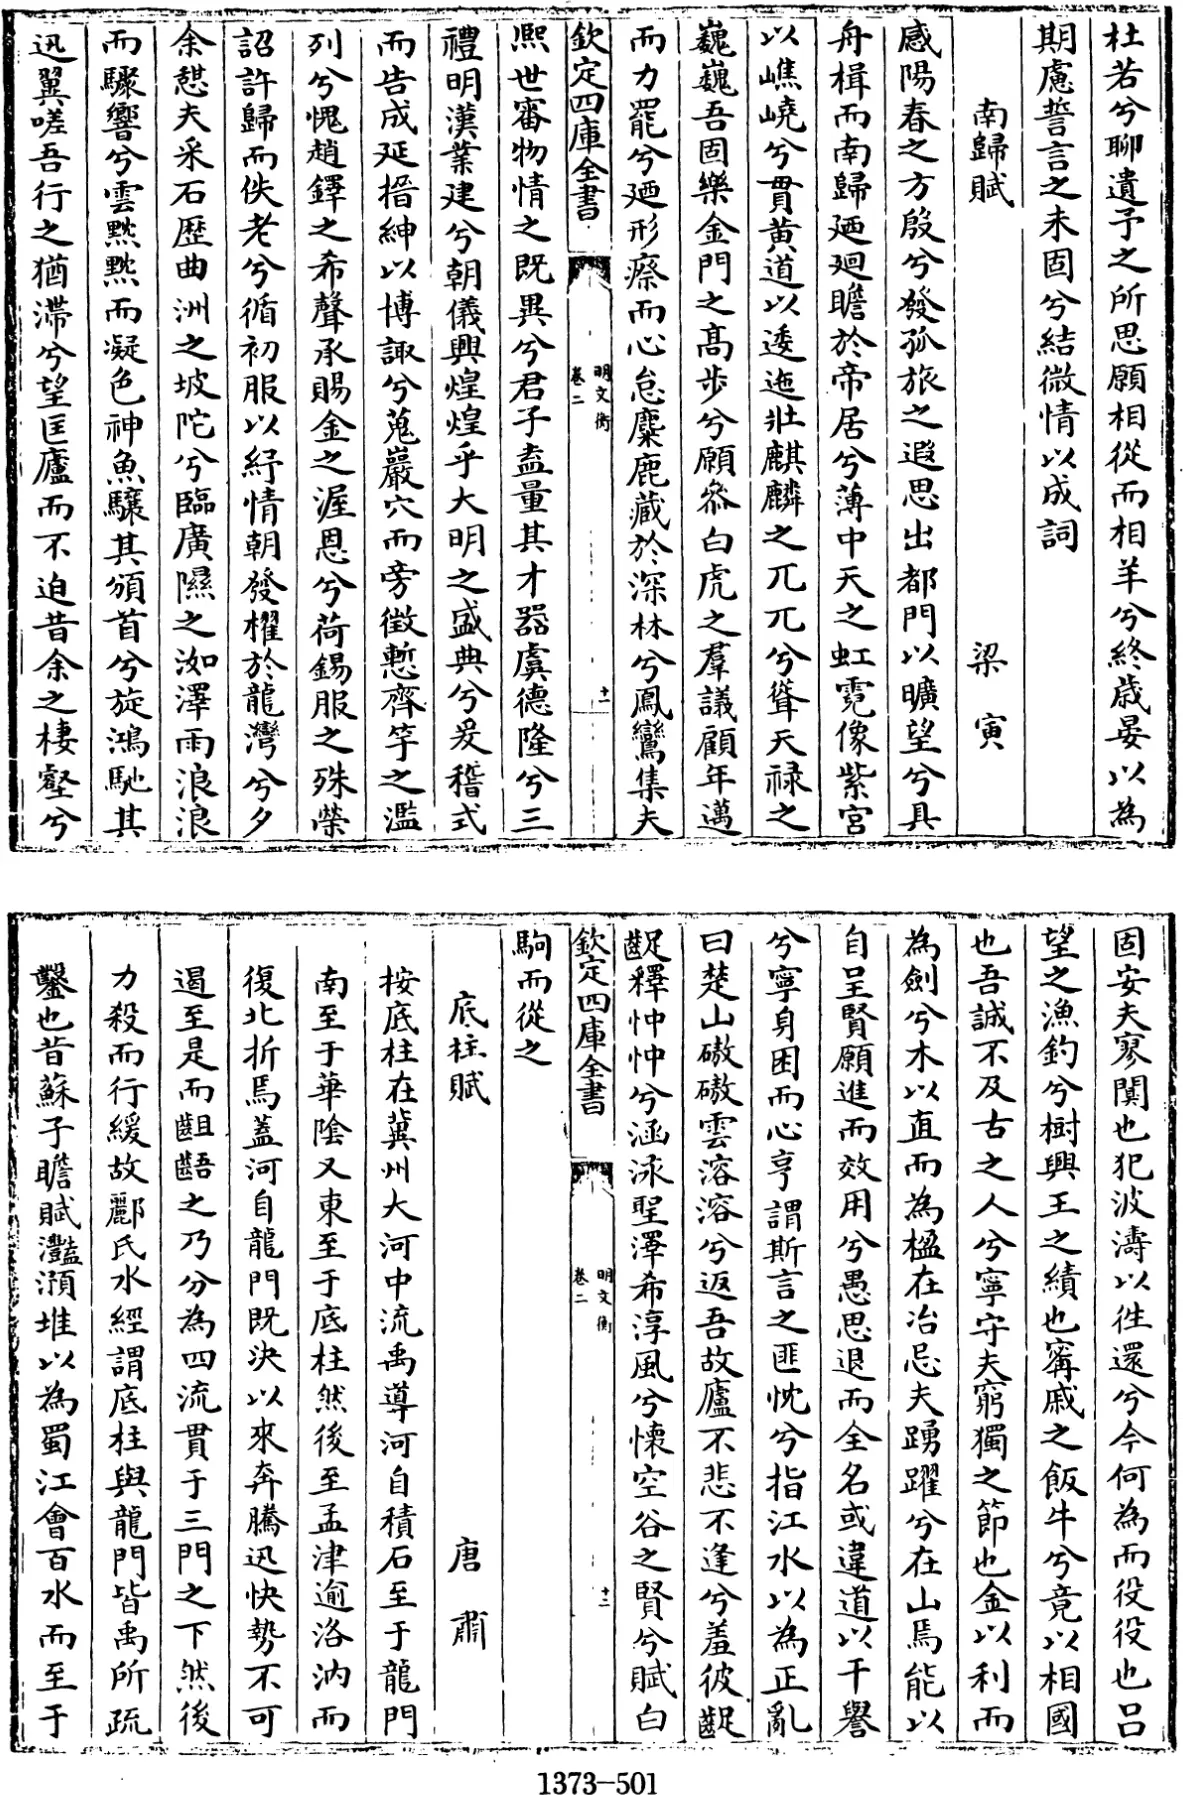 杜若兮聊遺予之所思願相從而相羊兮終歳晏以為
期慮誓言之未固兮結微情以成詞
南歸賦 梁寅
感陽春之方殷兮發孤旅之遐思出都門以曠望兮具
舟楫而南歸廼廻瞻於帝居兮薄中天之虹霓像紫宮
以嶕嶢兮貫黄道以逶迤壯麒麟之兀兀兮聳天禄之
巍巍吾固樂金門之髙步兮願叅白虎之羣議顧年邁
而力罷兮廼形瘵而心怠麋鹿藏於深林兮鳳鸞集夫
欽定四庫全書 明文衡 卷二 十一
熈世審物情之既異兮君子盍量其才器虞德隆兮三
禮明漢業建兮朝儀興煌煌乎大明之盛典兮爰稽式
而告成延搢紳以博諏兮蒐巖穴而旁徴慙齊竽之濫
列兮愧趙鐸之希聲承賜金之渥恩兮荷錫服之殊榮
詔許歸而佚老兮循初服以紓情朝發櫂於龍灣兮夕
余憇夫采石歴曲洲之坡陀兮臨廣隰之洳澤雨浪浪
而驟響兮雲黕黕而凝色神魚驤其頒首兮旋鴻馳其
迅翼嗟吾行之猶滯兮望匡廬而不迫昔余之棲壑兮
固安夫寥闃也犯波濤以徃還兮今何為而役役也吕
望之漁釣兮樹興王之績也甯戚之飯牛兮竟以相國
也吾誠不及古之人兮寧守夫窮獨之節也金以利而
為劍兮木以直而為楹在冶忌夫踴躍兮在山焉能以
自呈賢願進而效用兮愚思退而全名或違道以干譽
兮寧身困而心亨謂斯言之匪忱兮指江水以為正亂
曰楚山磝磝雲溶溶兮返吾故廬不悲不逢兮羞彼齪
齪釋忡忡兮涵泳聖澤希淳風兮懷空谷之賢兮賦白
欽定四庫全書 明文衡 卷二 十二
駒而從之
底柱賦 唐肅
按底柱在冀州大河中流禹導河自積石至于龍門
南至于華隂又東至于底柱然後至孟津逾洛汭而
復北折焉蓋河自龍門既決以來奔騰迅快勢不可
遏至是而齟齬之乃分為四流貫于三門之下然後
力殺而行緩故酈氏水經謂底柱與龍門皆禹所疏
鑿也昔蘇子瞻賦灔澦堆以為蜀江會百水而至于
1373-501